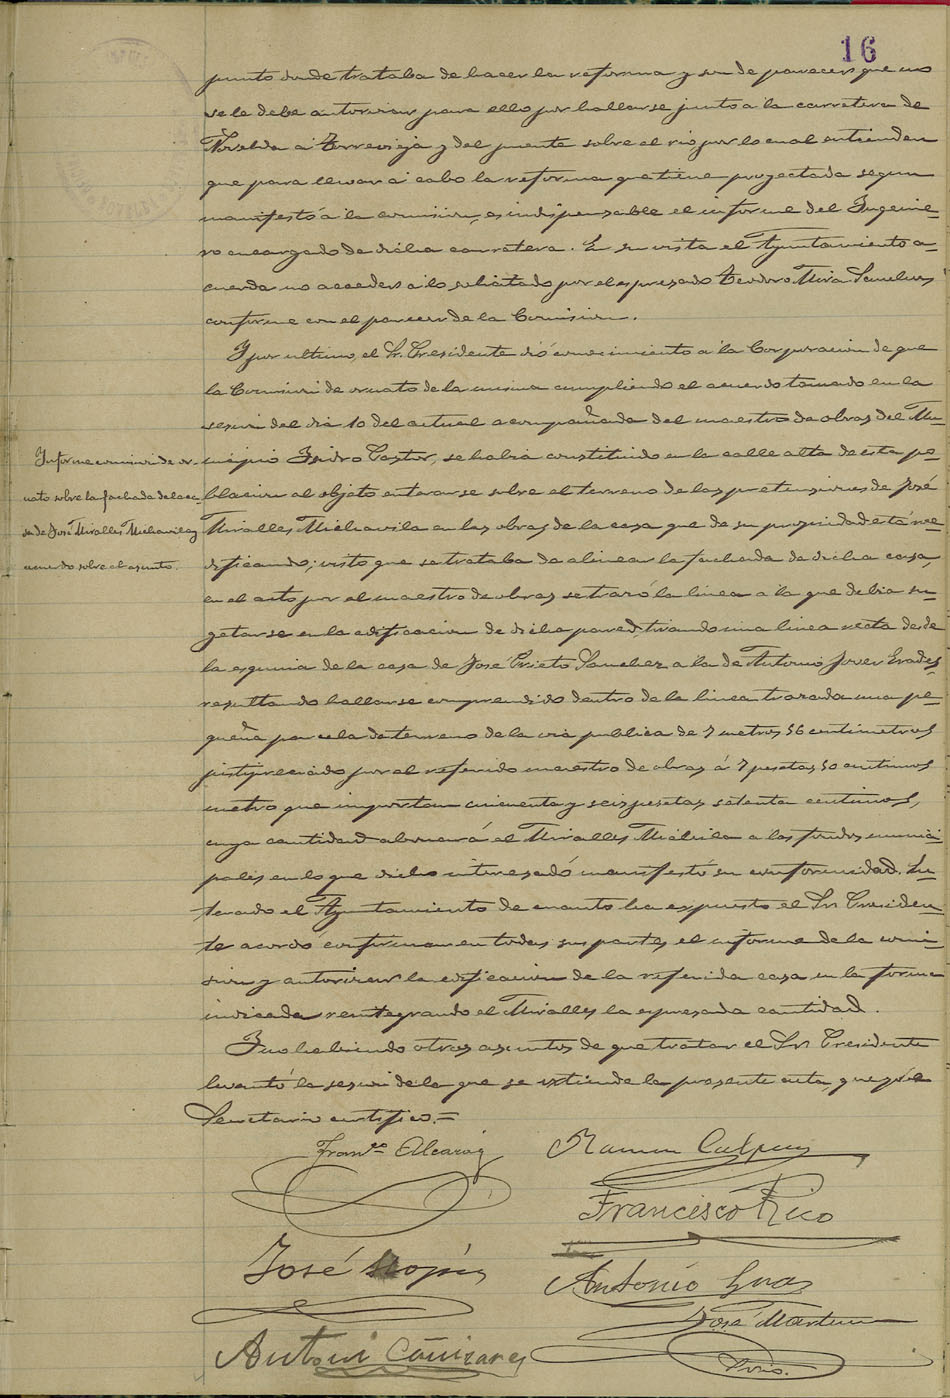 16
punto donde trataba de hacer la reforma y son de parecer que no
se le debe autorizar para ello por hallarse junto a la carretera de
Novelda á Torrevieja y del puente sobre el rio por lo cual entienden
que para llevar á cabo la reforma que tiene proyectada segun
manifestó á la comision, es indispensable el informe del Ingenie-
ro encargado de dicha carretera. En su vista el Ayuntamiento a-
cuerda no acceder a lo solicitado por el espresado Teodoro Mira Sanchez
conforme con el parecer de la Comision.
Y por ultimo, el Sr. Presidente dió conocimiento a la Corporacion de que
la Comision de ornato de la misma cumpliendo el acuerdo tomado en la
sesion del dia 10 del actual acompañada del maestro de obras del Mu-
nicipio Isidro Pastor, se habia constituido en la calle alta de esta po-
blacion al objeto enterarse sobre el terreno de las pretensiones de José
Miralles Michavila en las obras de la casa que de su propiedad está ree-
dificando; visto que se trataba de alinear la fachada de dicha casa,
en el acto por el maestro de obras se trazó la linea a la que debia su-
getarse en la edificacion de dicha pared, tirando una linea recta desde
la esquina de la casa de José Prieto Sanchez a la de Antonio Jover
resultando hallarse comprendido dentro de la linea trazada una pe-
queña parcela de terreno de la via publica de 7 metros 56 centimetros
justipreciado por el referido maestro de obras á 7 pesetas 50 centimos
metro que importan cincuenta y seis pesetas setenta centimos,
cuya cantidad abonará el Miralles a los fondos munici-
pales en lo que dicho interesado manifestó su conformidad. En-
terado el Ayuntamiento de cuanto ha expuesto el Sr. Presiden-
te acordó confirmar en todas sus partes el informe de la comi-
sion y autorizar la edificacion de la referida casa en la forma
indicada reintegrando el Miralles la espresada cantidad.
Y no habiendo otros asuntos de que tratar el Sr. Presidente
levantó la sesion de la que se extiende la presente acta, que yo el
Secretario certifico.=
Informe comision de or-
nato sobre la fachada de la ca-
sa de José Miralles Michavila y
acuerdo sobre el asunto.
Franco Alcaraz
Ramon
Francisco Rico
José
Antonio
José Martinez
Antonio Cañizares